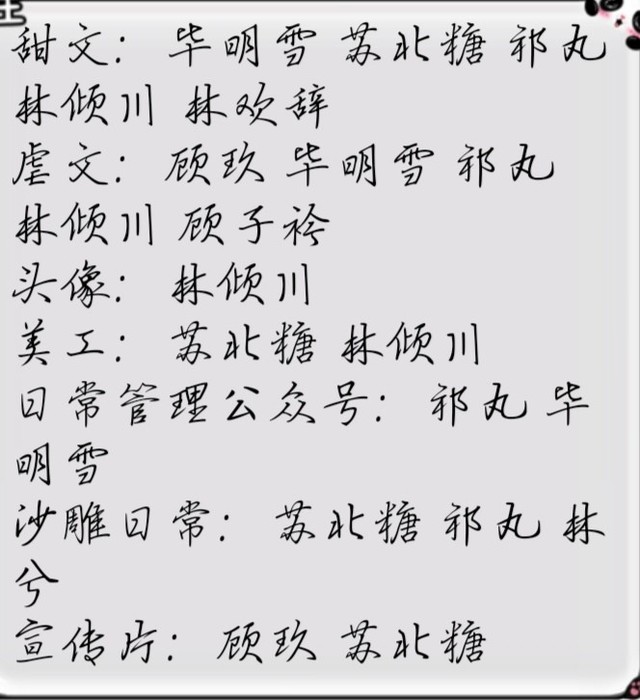 甜文： 毕明雪 苏北糖 祁丸
林倾川 林欢辞
虐文： 顾玖 毕明雪 祁丸
林倾川 顾子衿
头像： 林倾川
美工： 苏北糖 林倾川
日常管理公众号： 祁丸 毕
明雪
沙雕日常： 苏北糖 祁丸 林
兮
宣传片： 顾玖 苏北糖